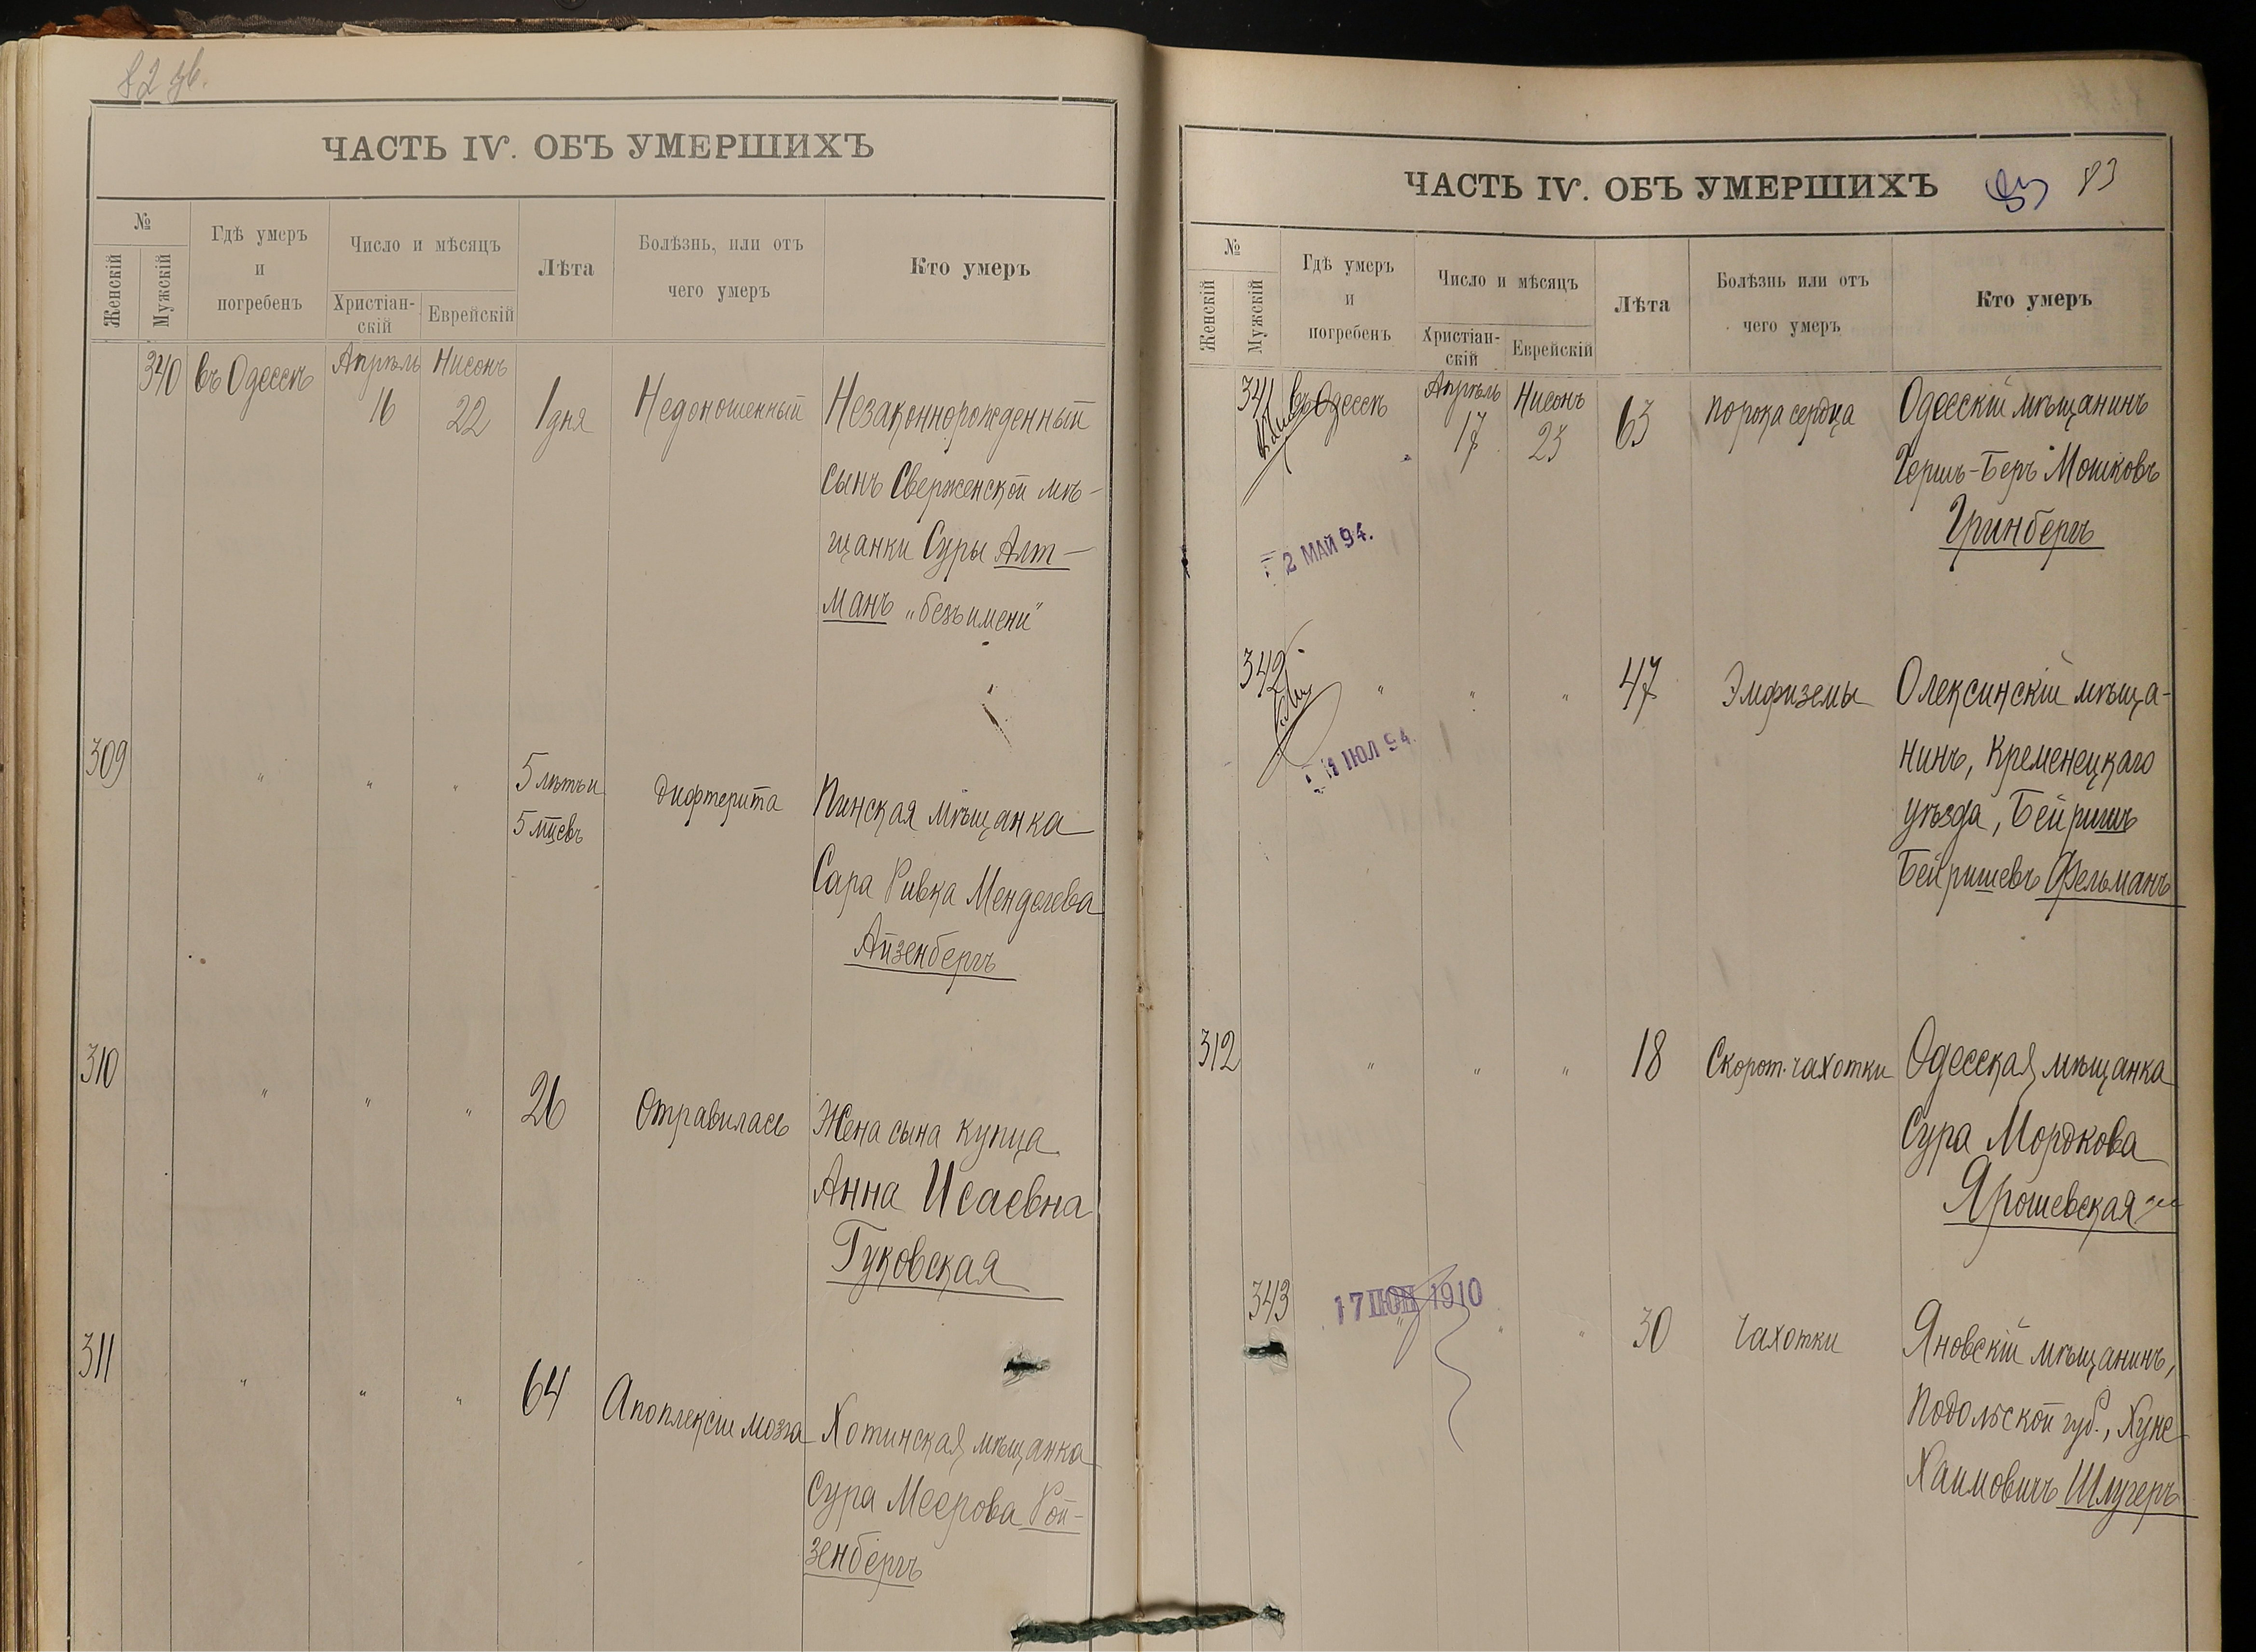 ЧАСТЬ IV. ОБЪ УМЕРШИХЪ
№
Женскій
Мужскій
Гдѣ умеръ
и
погребенъ
Число и мѣсяцъ
Христіан-
скій
Еврейскій
Лѣта
Болѣзнь, или отъ
чего умеръ
Кто умеръ
340 въ Одессѣ Апрѣль Нисонъ
16 22 1 дня Недоношенный Незаконнорожденный
сынъ Сверженской мѣ-
щанки Суры Алт-
манъ „безъ имени"
309 " " " 5 лѣтъ и
5 мцевъ
дифтерита Пинская мѣщанка
Сара Ривка Менделева
Айзенбергъ
310 " " " 26 Отравилась Жена сына купца
Анна Исаевна
Гуковская
311 " " " 64 Апоплексіи мозга Хотинская мѣщанка
Сура Меерова Рой-
зенбергъ
ЧАСТЬ IV. ОБЪ УМЕРШИХЪ 83
№
Женскій
Мужскій
Гдѣ умеръ
и
погребенъ
Число и мѣсяцъ
Христіан-
скій
Еврейскій
Лѣта
Болѣзнь или отъ
чего умеръ
Кто умеръ
341 въ Одессѣ Апрѣль Нисонъ
17 23 63 порока сердца Одесскій мѣщанинъ
Гершъ-Беръ Мошковъ
Гринбергъ
2 МАЙ 94.
342 " " " 47 Эмфиземы Олексинскій мѣща-
нинъ, Кременецкаго
уѣзда, Бейришъ
Бейришевъ Фельманъ
ІЮЛ 94.
312 " " " 18 Скорот. чахотки Одесская мѣщанка
Сура Мордкова
Ярошевская
343 17 1910
" " " 30 Чахотки Яновскій мѣщанинъ,
Подольской губ., Хуне
Хаимовичъ Шлугеръ